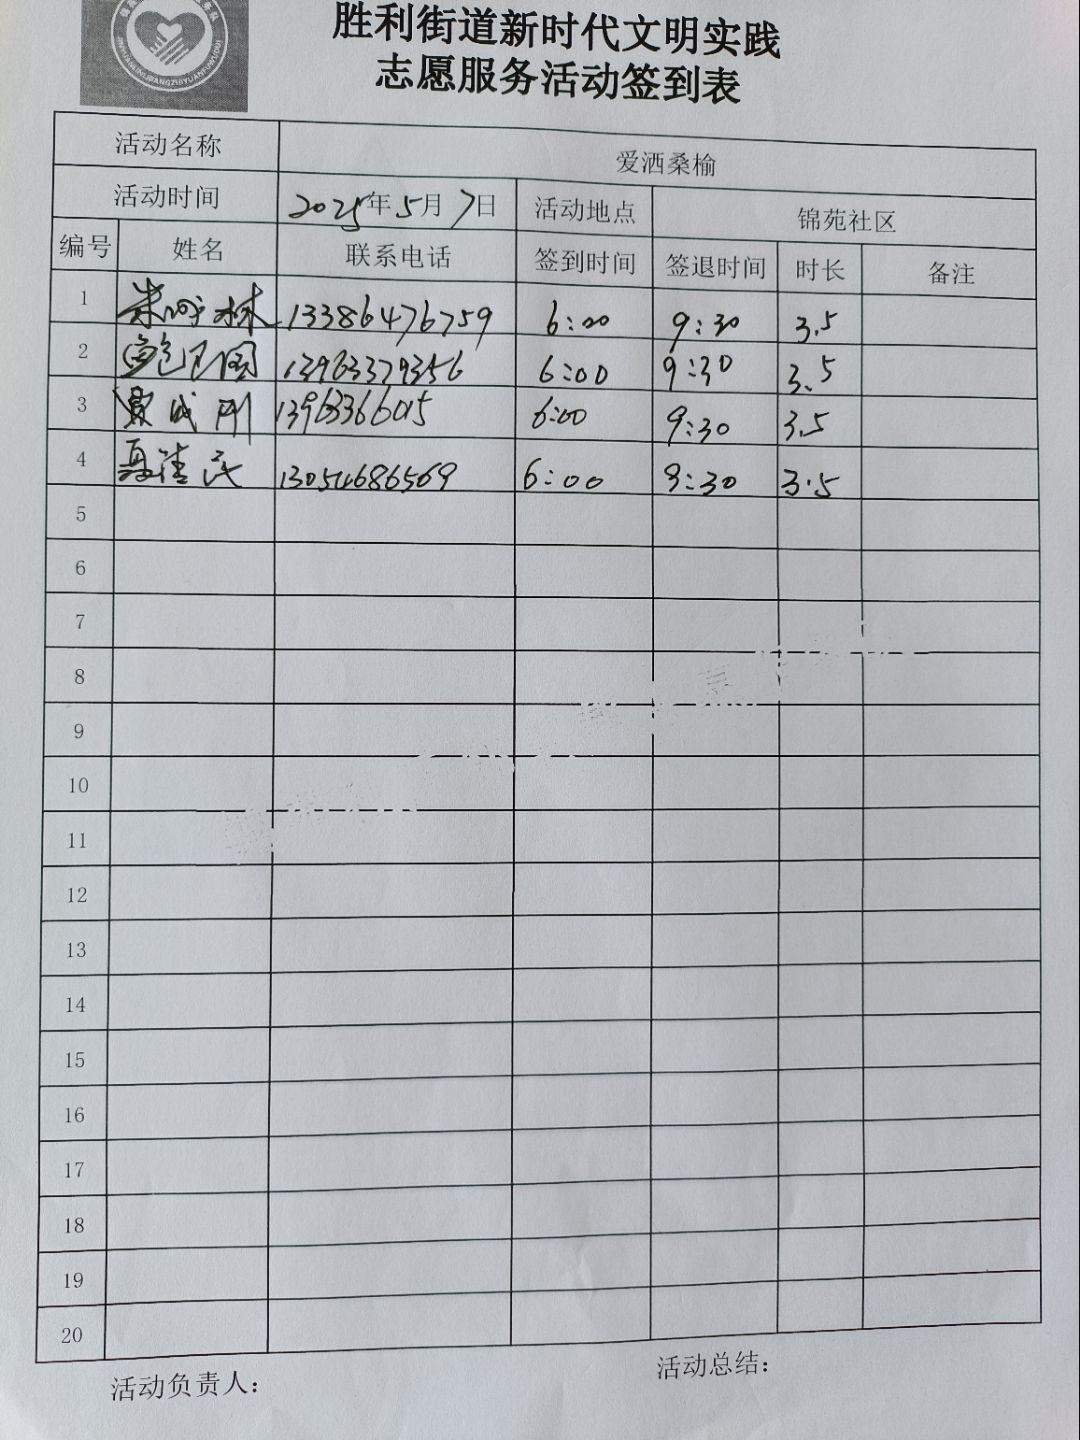 胜利街道新时代文明实践
志愿服务活动签到表
活动名称 爱洒桑榆
活动时间 2025年5月7日 活动地点 锦苑社区
编号 姓名 联系电话 签到时间 签退时间 时长 备注
1 13386476759 6:00 9:30 3.5
2 13963379356 6:00 9:30 3.5
3 成刚 13963366015 6:00 9:30 3.5
4 聂清民 13054686569 6:00 9:30 3.5
5
6
7
8
9
10
11
12
13
14
15
16
17
18
19
20
活动负责人: 活动总结: